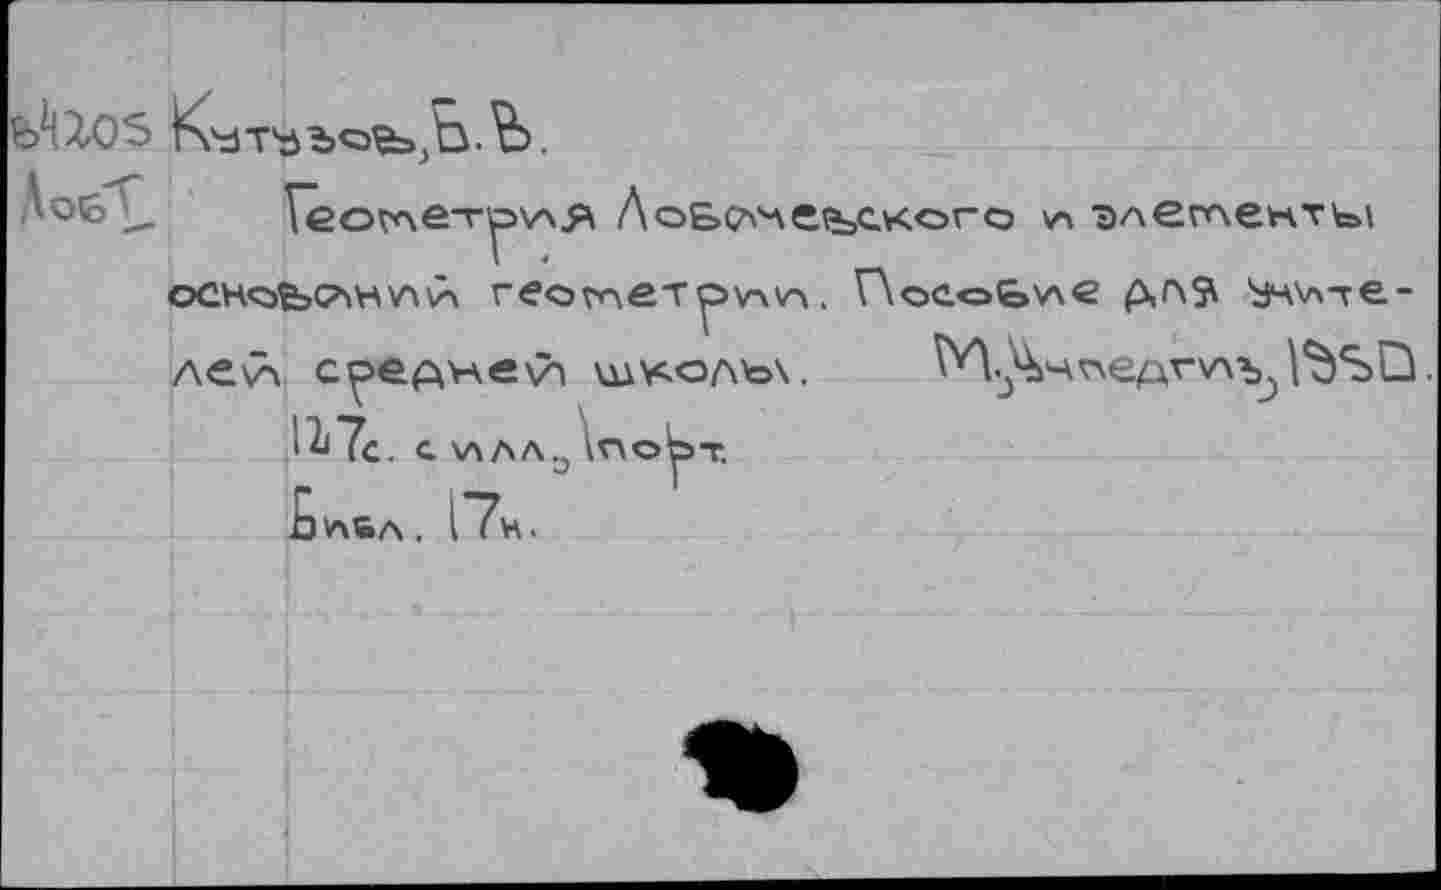 Кутузов, Б.В.
Геометрия Лобачевского и элементы
оснований геометрии. Пособие для учите-
лей средней школы. М., Учпедгиз, 1950.
127с. с илл., 1 порт.
Библ. 17н.